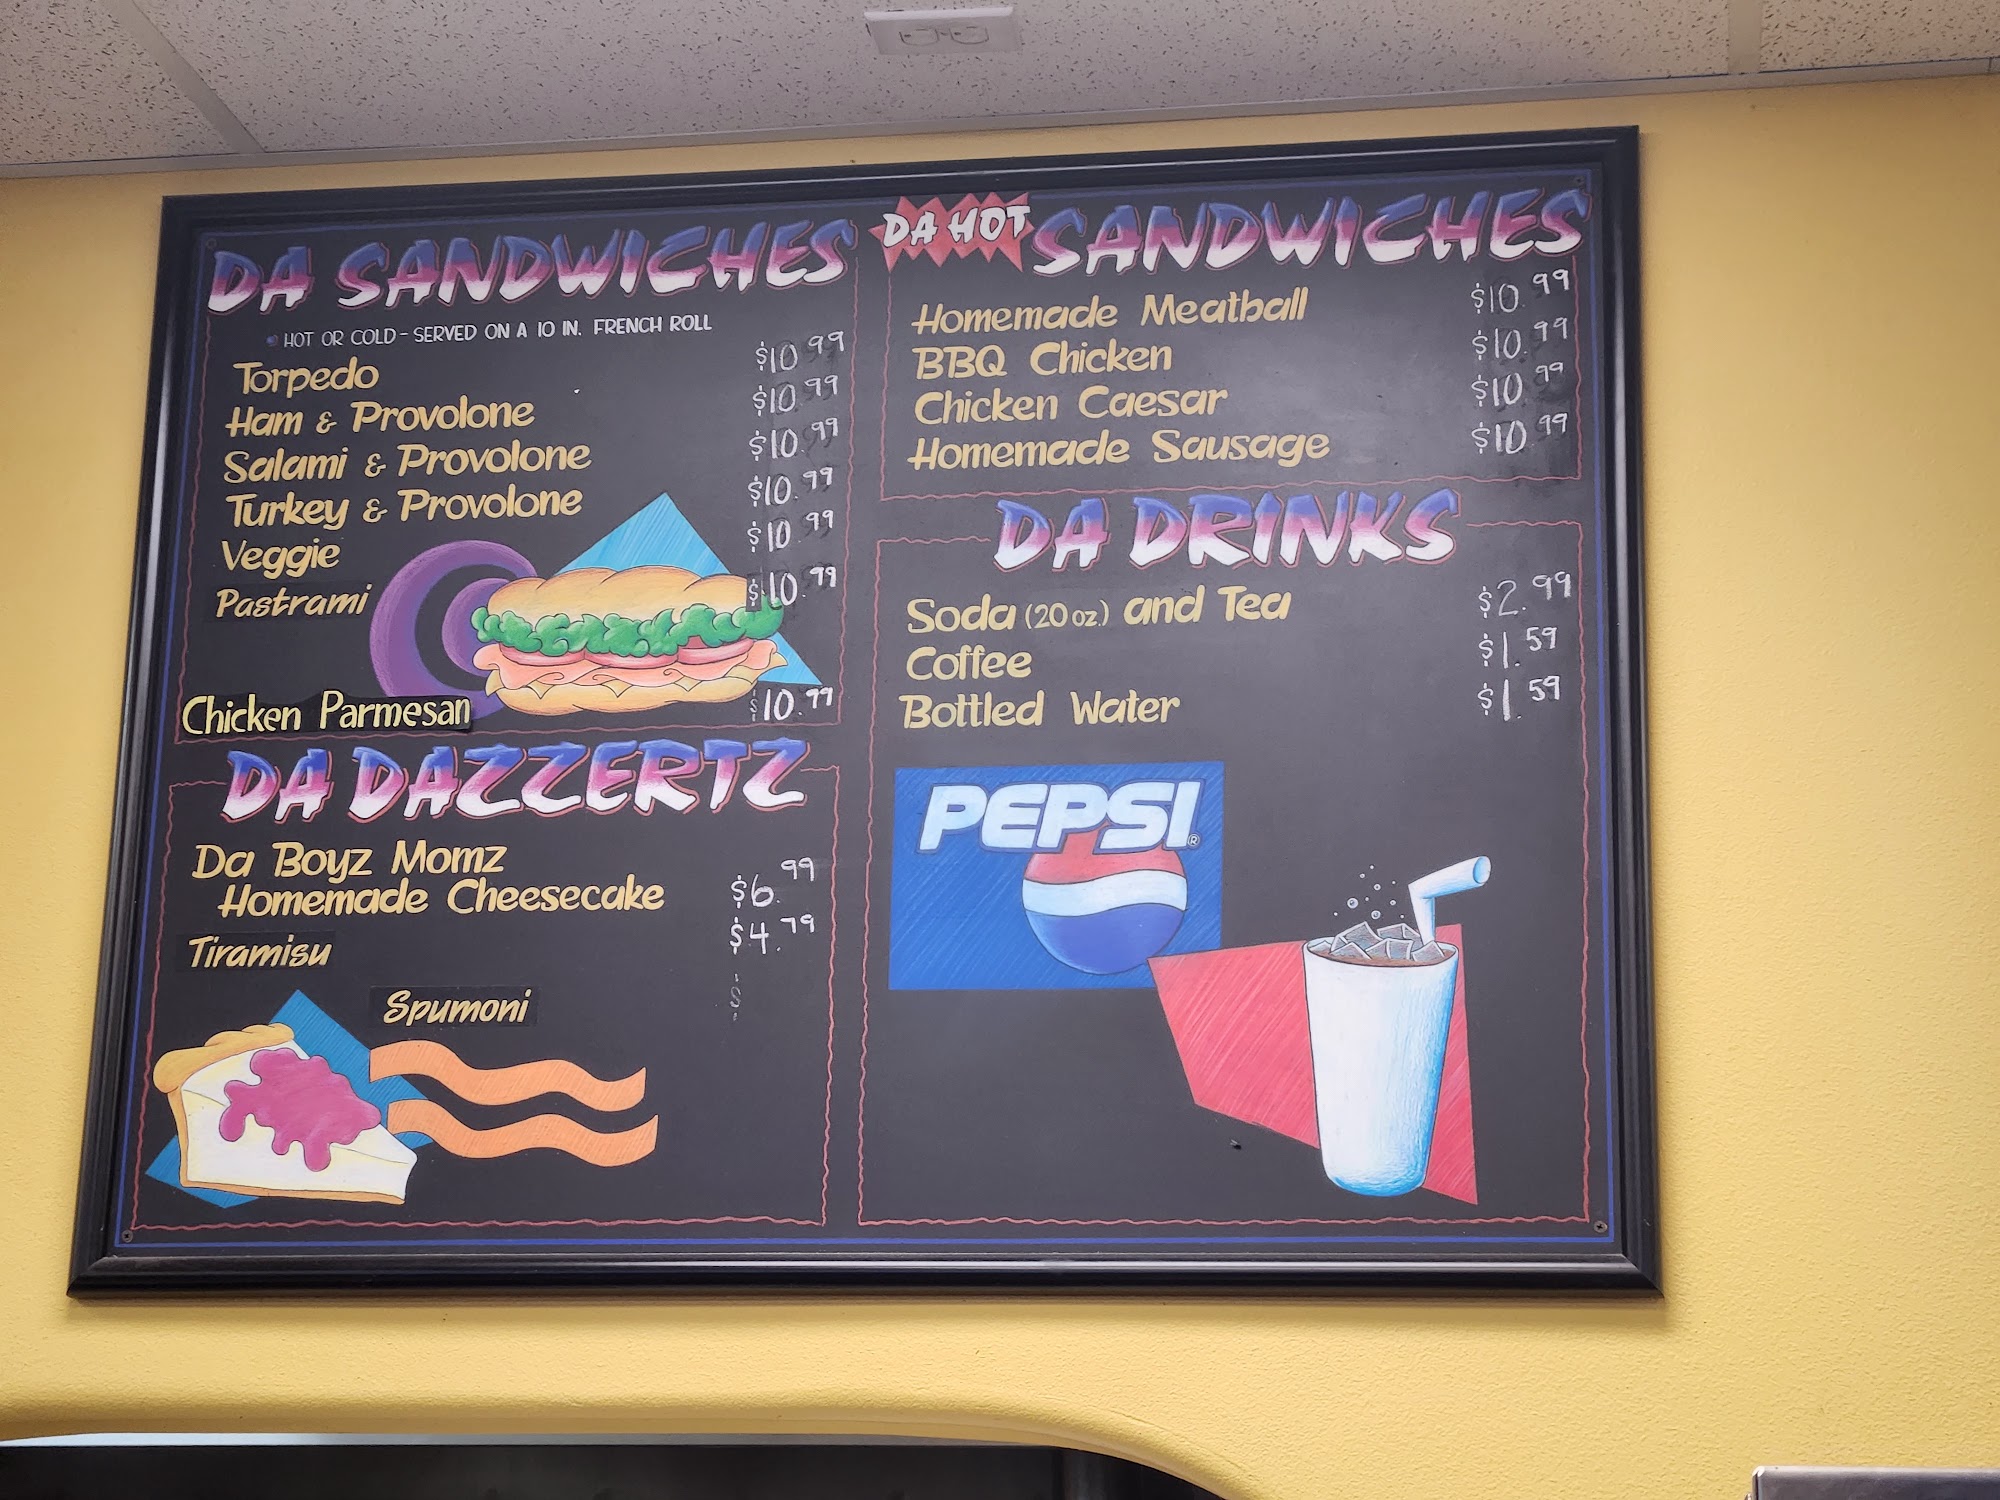 DA SANDWICHES
HOT OR COLD - SERVED ON A 10 IN. FRENCH ROLL
Torpedo $10.99
Ham & Provolone $10.99
Salami & Provolone $10.99
Turkey & Provolone $10.99
Veggie $10.99
Pastrami $10.99
Chicken Parmesan $10.99
DA DAZZERTZ
Da Boyz Momz
Homemade Cheesecake $6.99
Tiramisu $4.79
Spumoni $
DA HOT SANDWICHES
Homemade Meatball $10.99
BBQ Chicken $10.99
Chicken Caesar $10.99
Homemade Sausage $10.99
DA DRINKS
Soda (20 oz.) and Tea $2.99
Coffee $1.59
Bottled Water $1.59
PEPSI®